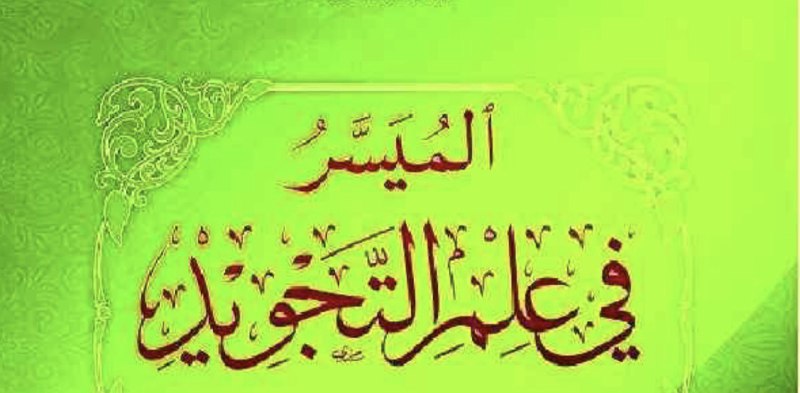 ٱلمُيَسَّرُ
فِي عِلْمِ التَّجْوِيْدِ